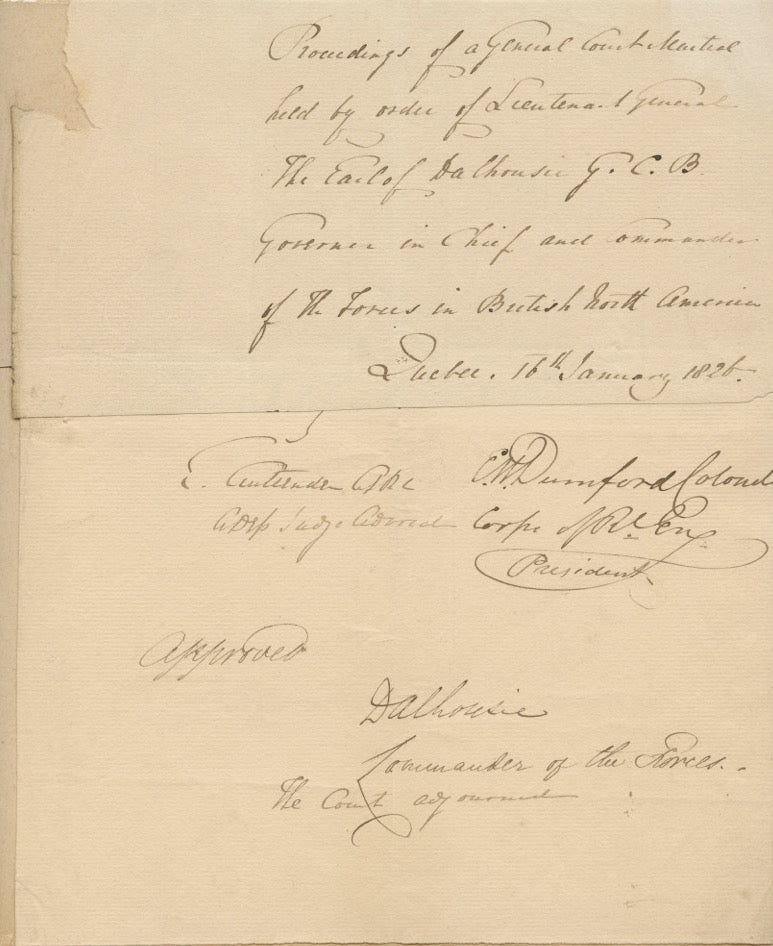 Proceedings of a General Court Martial
held by order of Lieutenant General
The Earl of Dalhousie G. C. B.
Governor in Chief and Commander
of The Forces in British North America
Quebec. 16th January, 1826.
E.
Judge Advocate
E.W. Durnford Colonel
Corps of Rl. Eng.
President
Approved
Dalhousie
Commander of the Forces.
The Court adjourned